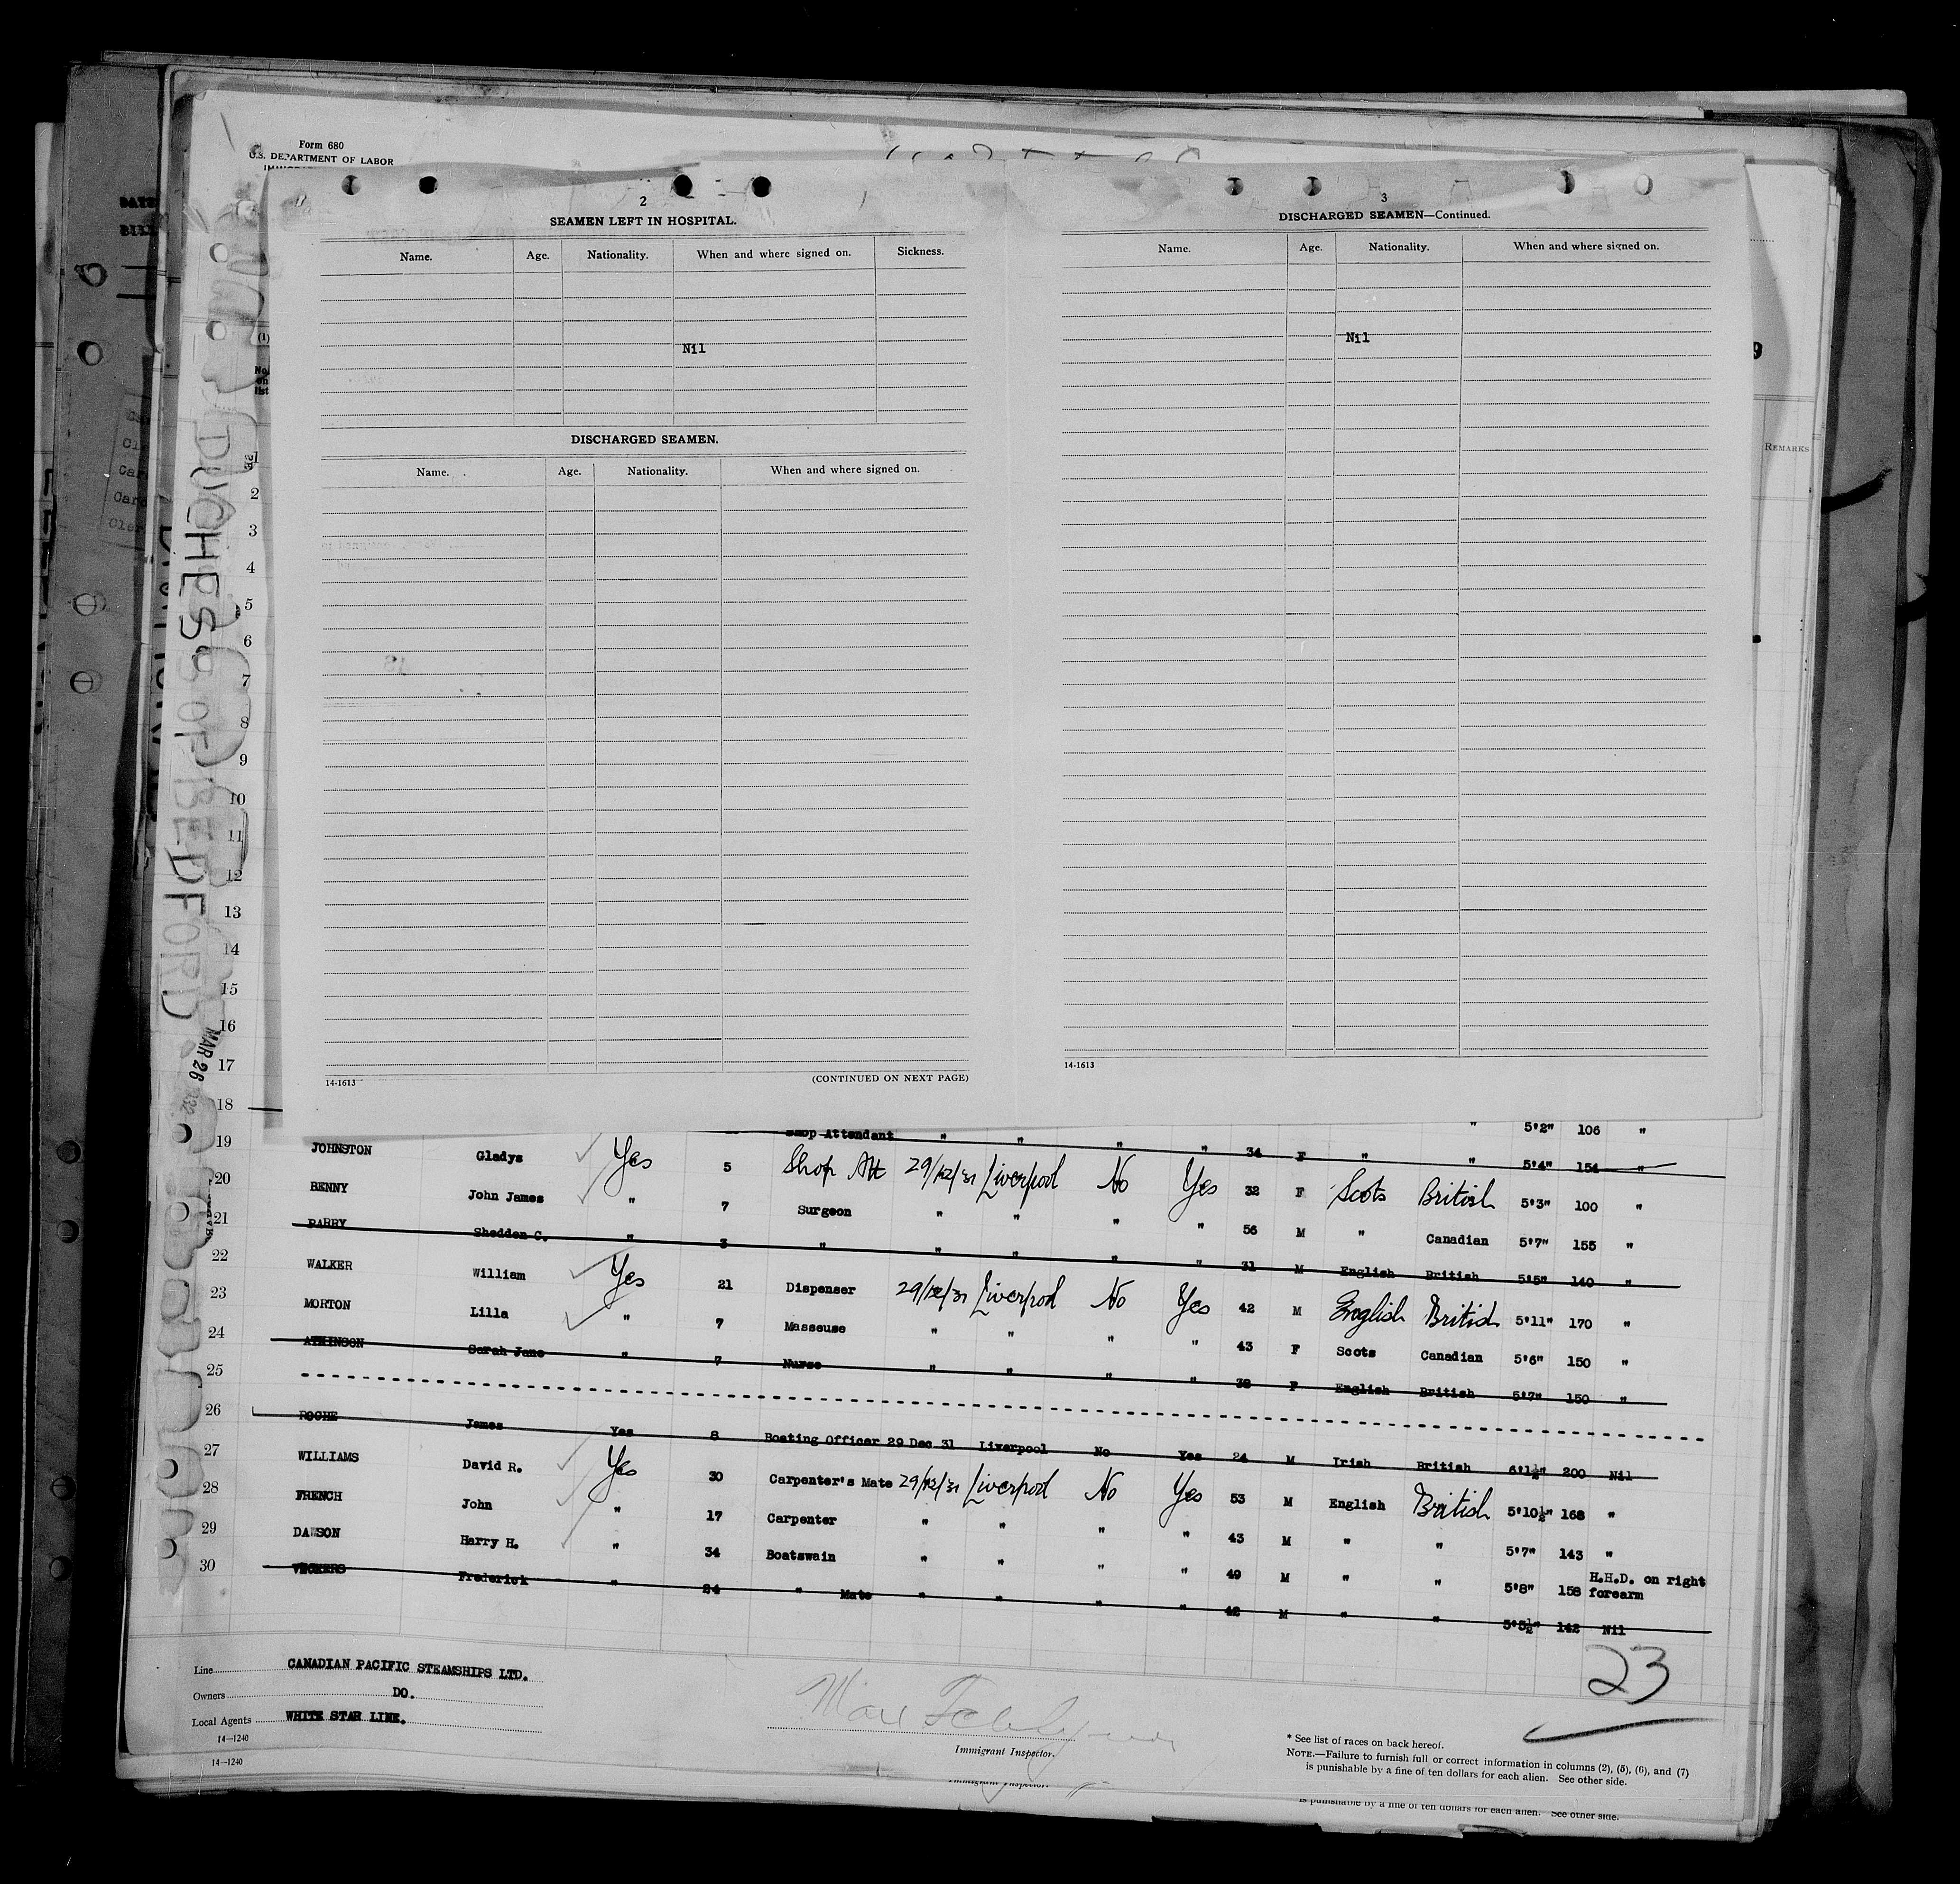 Form 680
U.S. DEPARTMENT OF LABOR
2
SEAMEN LEFT IN HOSPITAL.
Name. Age. Nationality. When and where signed on. Sickness.
Nil
DISCHARGED SEAMEN.
Name. Age. Nationality. When and where signed on.
14-1613
(CONTINUED ON NEXT PAGE)
3
DISCHARGED SEAMEN—Continued.
Name. Age. Nationality. When and where signed on.
Nil
14-1613
REMARKS
DUCHESS OF BEDFORD
MAR 26
1
2
3
4
5
6
7
8
9
10
11
12
13
14
15
16
17
18
" 5'2" 106 "
19 Shop Attendant " " " " 34 F " " 5'4" 154 "
JOHNSTON Gladys Yes 5 Shop Att 29/12/31 Liverpool No Yes 32 F Scots British 5'3" 100 "
20 BENNY John James " 7 Surgeon " " " " 56 M " Canadian 5'7" 155 "
21 PARRY Shedden C. " 3 " " " " " 31 M English British 5'5" 140 "
22 WALKER William Yes 21 Dispenser 29/12/31 Liverpool No Yes 42 M English British 5'11" 170 "
23 MORTON Lilla " 7 Masseuse " " " " 43 F Scots Canadian 5'6" 150 "
24 ATKINSON Sarah Jane " 7 Nurse " " " " 38 F English British 5'7" 150 "
25
26 ROCHE James Yes 8 Boating Officer 29 Dec 31 Liverpool No Yes 24 M Irish British 6'1½" 200 Nil
27 WILLIAMS David R. Yes 30 Carpenter's Mate 29/12/31 Liverpool No Yes 53 M English British 5'10½" 168 "
28 FRENCH John " 17 Carpenter " " " " 43 M " " 5'7" 143 "
29 DAWSON Harry H. " 34 Boatswain " " " " 49 M " " 5'8" 158 H.H.D. on right forearm
30 VICKERS Frederick " 24 " Mate " " " " 42 M " " 5'5½" 142 Nil
23
Line CANADIAN PACIFIC STEAMSHIPS LTD.
Owners DO.
Local Agents WHITE STAR LINE.
14—1240
14—1240
Immigrant Inspector.
* See list of races on back hereof.
NOTE.—Failure to furnish full or correct information in columns (2), (5), (6), and (7)
is punishable by a fine of ten dollars for each alien. See other side.
is punishable by a fine of ten dollars for each alien. See other side.